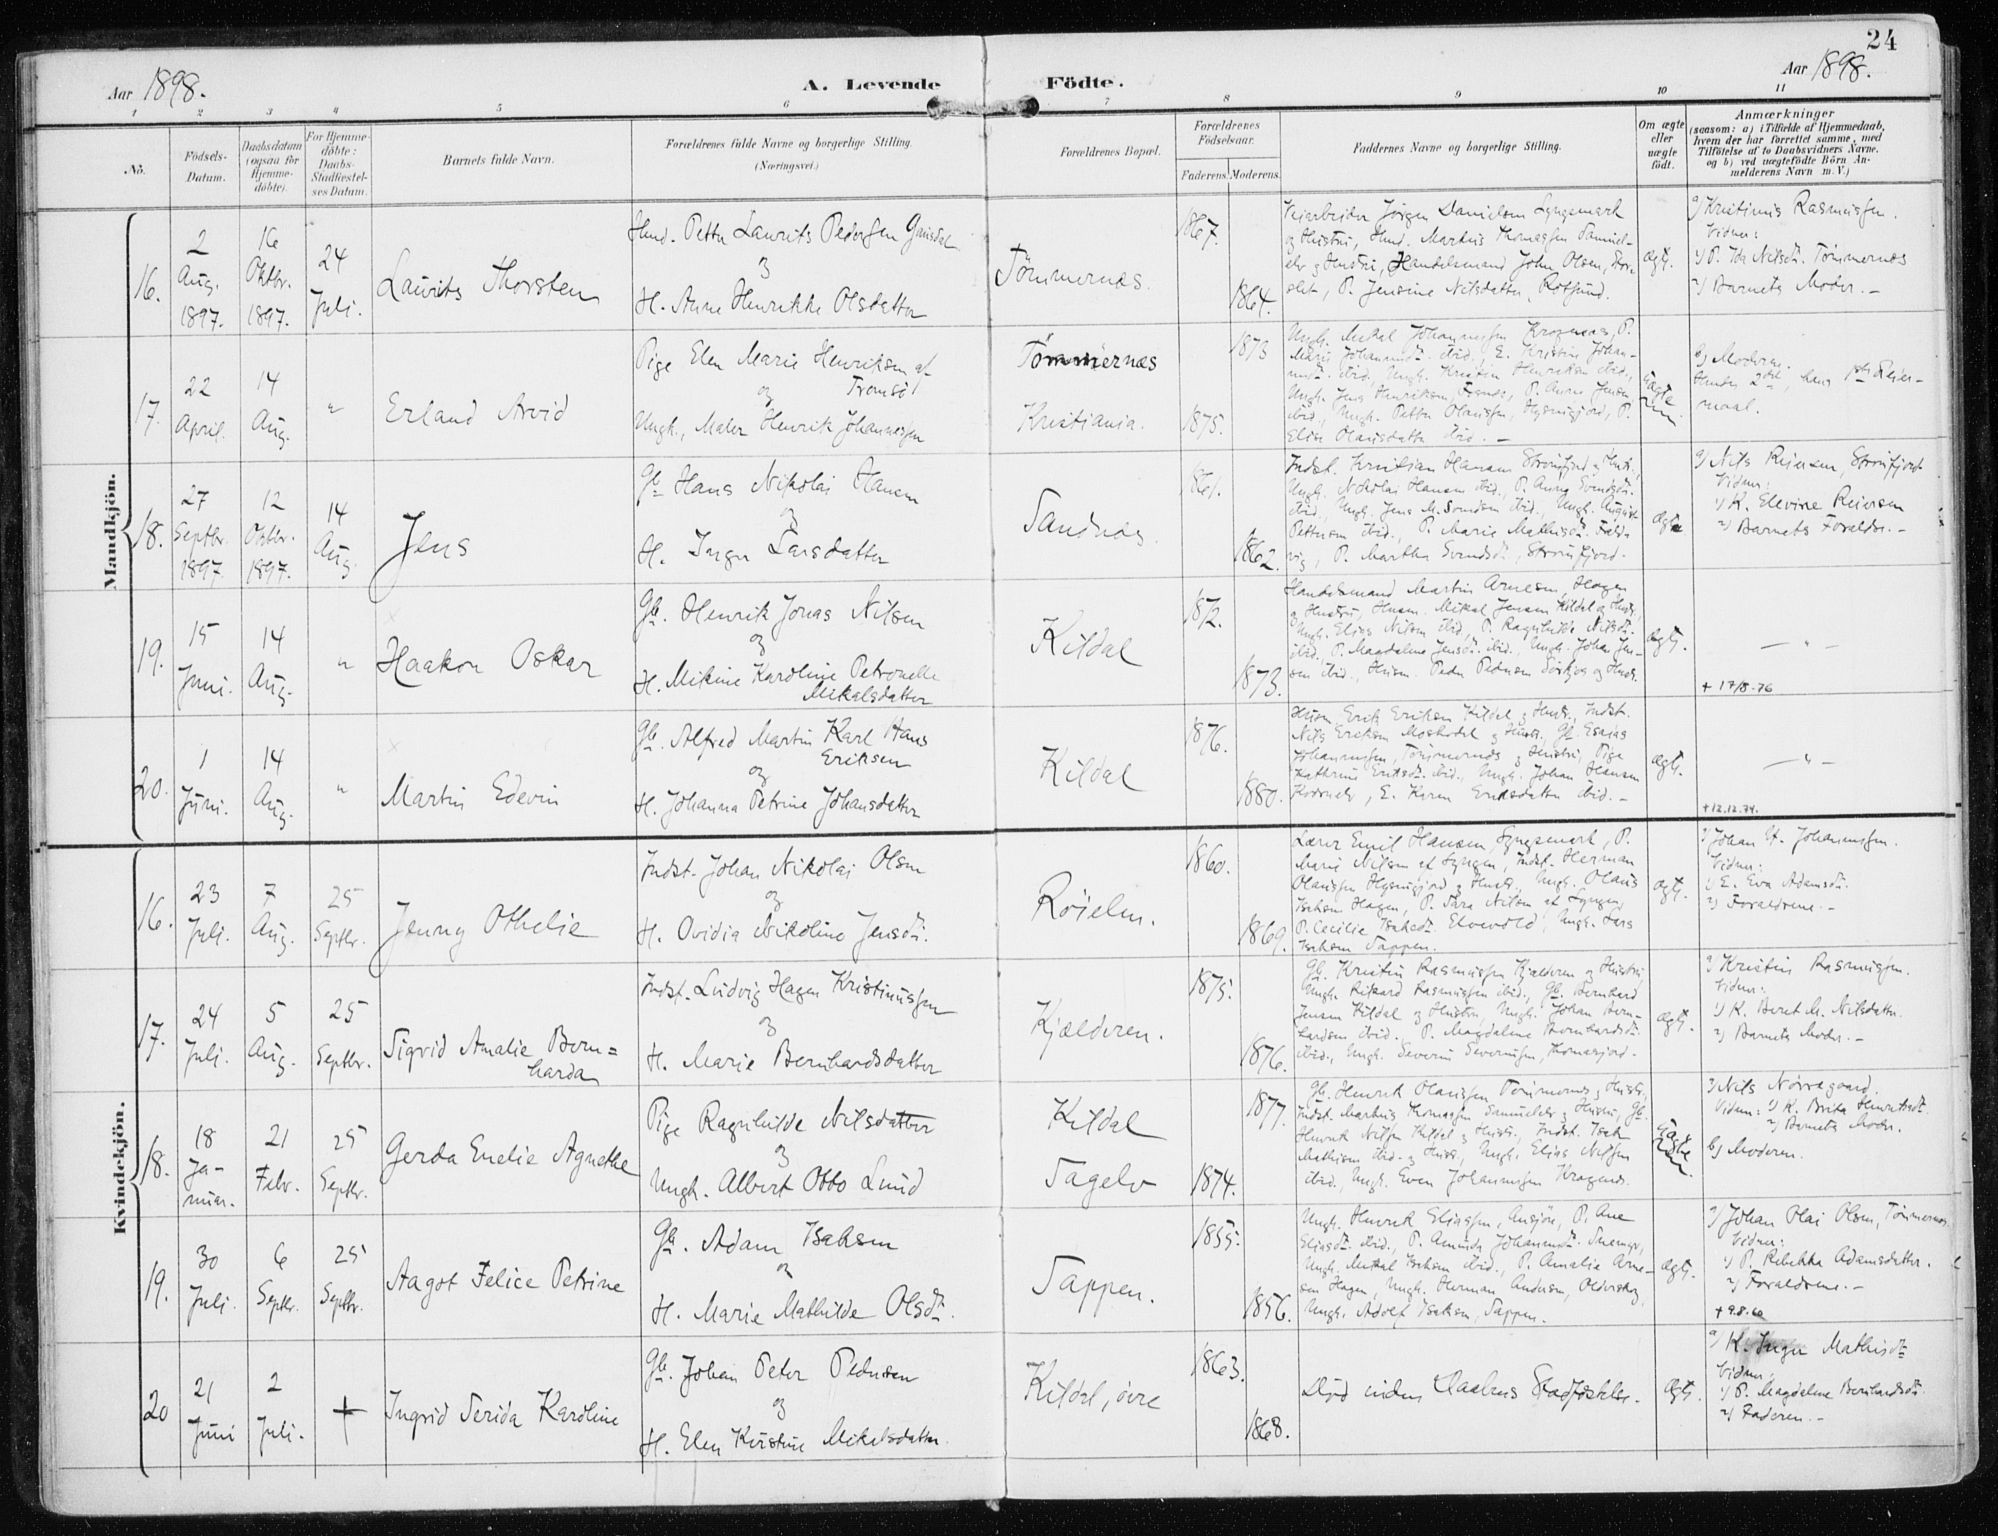 24
Aar 1898.
A. Levende Födte.
Aar 1898.
1 2 3 4 5 6 7 8 9 10 11
No.
Födsels-Datum.
Daabsdatum (ogsaa for Hjemme-döbte).
For Hjemme-döbte: Daabs-Stadfæstel-ses Datum.
Barnets fulde Navn.
Forældrenes fulde Navne og borgerlige Stilling. (Næringsvei.)
Forældrenes Bopæl.
Forældrenes Födselsaar.
Faderens. Moderens.
Faddernes Navne og borgerlige Stilling.
Om ægte eller uægte födt.
Anmærkninger
(saasom: a) i Tilfælde af Hjemmedaab, hvem der har forrettet samme, med Tilföielse af to Daabsvidners Navne, og b) ved uægtefödte Börn An-melderens Navn m. V.)
Mandkjön.
16.
2 Aug. 1897.
16 Oktbr. 1897.
24 Juli.
Laurits Thorsten
Petter Laurits Pedersen
og
H. Anne Henrikke Olsdatter
Tömmernæs.
1867.
1864.
Veiarbeider Jörgen Danielsen Lyngsmark
og Hustru, Martius Thomassen Samuel-
elv og Hustru, Handelsmand John Olsen,
P. Jensine Nilsdatter, Rotsund.
ægt.
a) Kristinus Rasmussen.
Vidner:
1) P. Ida Nilsdt. Tömmernæs
2) Barnets Moder. -
17.
22 April.
14 Aug.
"
Erland Arvid
Pige Elen Marie Henriksen af
Tromsö
og
Ungk., Maler Henrik Johannessen
Tömmernæs
Kristiania.
1873
1875.
Ungk. Mikal Johannessen Kragenæs, P.
Marie Johannesdt. ibid., E. Kristin Johan-
nesdt. ibid, Ungk. Kristin Henriksen ibid.,
Ungk. Jens Henriksen, P. Anne Jensen
ibid., Ungk. Petter Olaussen, P.
Elise Olausdatter ibid. -
Uægte
b) Moderen.
Hendes 2det, hans 1ste Leier-
maal.
18.
27 Septbr. 1897
12 Oktbr. 1897.
14 Aug.
Jens
Gb Hans Nikolai Hansen
og
H. Inger Larsdatter
Sandnæs.
1861.
1862.
Indst. Kristian Hansen Storvifjord og Hust.,
Ungk. Nikolai Hansen ibid., P. Anna Svendsdt.
ibid., Ungk. Jens M. Svendsen ibid., Ungk. August
Pettersen ibid., P. Marie Mathisdt.
P. Martha Svendsdt.
ægte
a) Nils Reiersen,
Vidner:
1) K. Elevine Reiersen
2) Barnets Forældre. -
19.
15 Juni.
14 Aug.
"
Haakon Oskar
Gb. Henrik Jonas Nilsen
og
H. Mikine Karoline Petronelle
Mikalsdatter
Kildal
1872.
1873.
Handelsmand Martin Arnesen, Hagen
og Hustru, Husm. Mikal Jensen Kildal og Hust.,
Ungk. Elias Nilsen ibid., P. Ragnhilde Nilsdt.
ibid., P. Magdalene Jensdt. ibid., Ungk. Johan Jen-
sen ibid., Husm. Peder Pedersen og Hust.
ægt.
- " -
+ 17/8-76
20.
1 Juni.
14 Aug.
"
Martin Edevin
Gb. Alfred Martin Karl Hans
Eriksen
og
H. Johanna Petrine Johansdatter
Kildal
1876.
1880.
Husm. Erik Eriksen Kildal og Hust., Indst.
Nils Eriksen og Hust. Gb. Esaias
Johannessen, Tömmernæs og Hustru, Pige
Kathrine Eriksdt. ibid., Ungk. Johan Hansen
E. Karen Eriksdatter ibid. -
ægt.
- " -
+12.12.74.
Kvindekjön.
16.
23 Juli.
7 Aug.
25 Septbr.
Jenny Othelie
Indst. Johan Nikolai Olsen
og
H. Ovidia Nikoline Jensdt.
Röielen.
1860.
1869.
Lærer Emil Hansen Lyngsmark, P.
Marie Nilsen af Lyngen, Indst. Herman
Olaussen og Hust., Ungk. Olaus
Isaksen Hagen, P. Sara Nilsen af Lyngen,
P. Cecilie Isaksdt. Elvevold, Ungk. Lars
Isaksen Sappen.
ægt.
a) Johan Johannessen.
Vidner:
1) E. Eva Adamsdt.
2) Forældrene. -
17.
24 Juli.
5 Aug.
25 Septbr.
Sigrid Amalie Bern=
harda
Indst. Ludvig Hagen Kristinussen
og
H. Marie Bernhardsdatter
Kjælderen.
1875.
1876.
Gb. Kristin Rasmussen Kjælderen og Hustru,
Ungk. Rikard Rasmussen ibid., Gb. Bernhard
Jensen Kildal og Hustru, Ungk. Johan Bern-
hardsen ibid. P. Magdalene Bernhardsdt.
ibid., Ungk. Severin Severinsen,
ægt.
a) Kristin Rasmussen.
Vidner:
1) K. Beret M. Nilsdatter.
2) Barnets Moder. -
18.
18 Ja-nuar.
21 Febr.
25 Septbr.
Gerda Enelie Agnethe
Pige Ragnhilde Nilsdatter
og
Ungk. Albert Otto Lund
Kildal
Sagelv
1877.
1874.
Gb. Henrik Olaussen Tömmernes og Hustru,
Indst. Martius Thomassen Samuelelv og Hustru, Gb.
Henrik Nilsen Kildal og Hust., Indst. Isak
Mathisen ibid. og Hust., Ungk. Elias Nilssen
ibid., Ungk. Even Johannessen Kragenæs.
Uægte
a) Nils Nörregaard.
Vidner: 1) K. Brita Henriksdt.
2) Barnets Moder.
b) Moderen.
19.
30 Juli.
6 Septbr.
25 Septbr.
Aagot Felice Petrine
Gb. Adam Isaksen
og
H. Marie Mathilde Olsdt.
Sappen.
1855.
1856.
Ungk. Henrik Eliassen, P. Ane
Eliasdt. ibid., P. Amanda Johannesdt.
Ungk. Mikal Isaksen ibid., P. Amalie Arne-
sen Hagen, Ungk. Herman Andersen, Olderskog,
Ungk. Adolf Isaksen, Sappen.
ægt.
a) Johan Olai Olsen, Tömmernæs
Vidner:
1) P. Rebekka Adamsdatter.
2) Forældrene. -
+ 9.8.60
20
21 Juni
2 Juli.
+
Ingrid Serida Karoline
Gb. Johan Peter Pedersen
og
H. Elen Kirstine Mikalsdatter.
Kildal, övre
1863.
1868.
Död inden Daabens Stadfæstelse.
ægt.
a) K. Inger Mathisdt.
Vidner:
1) P. Magdalene Bernhardsdt.
2) Faderen. -